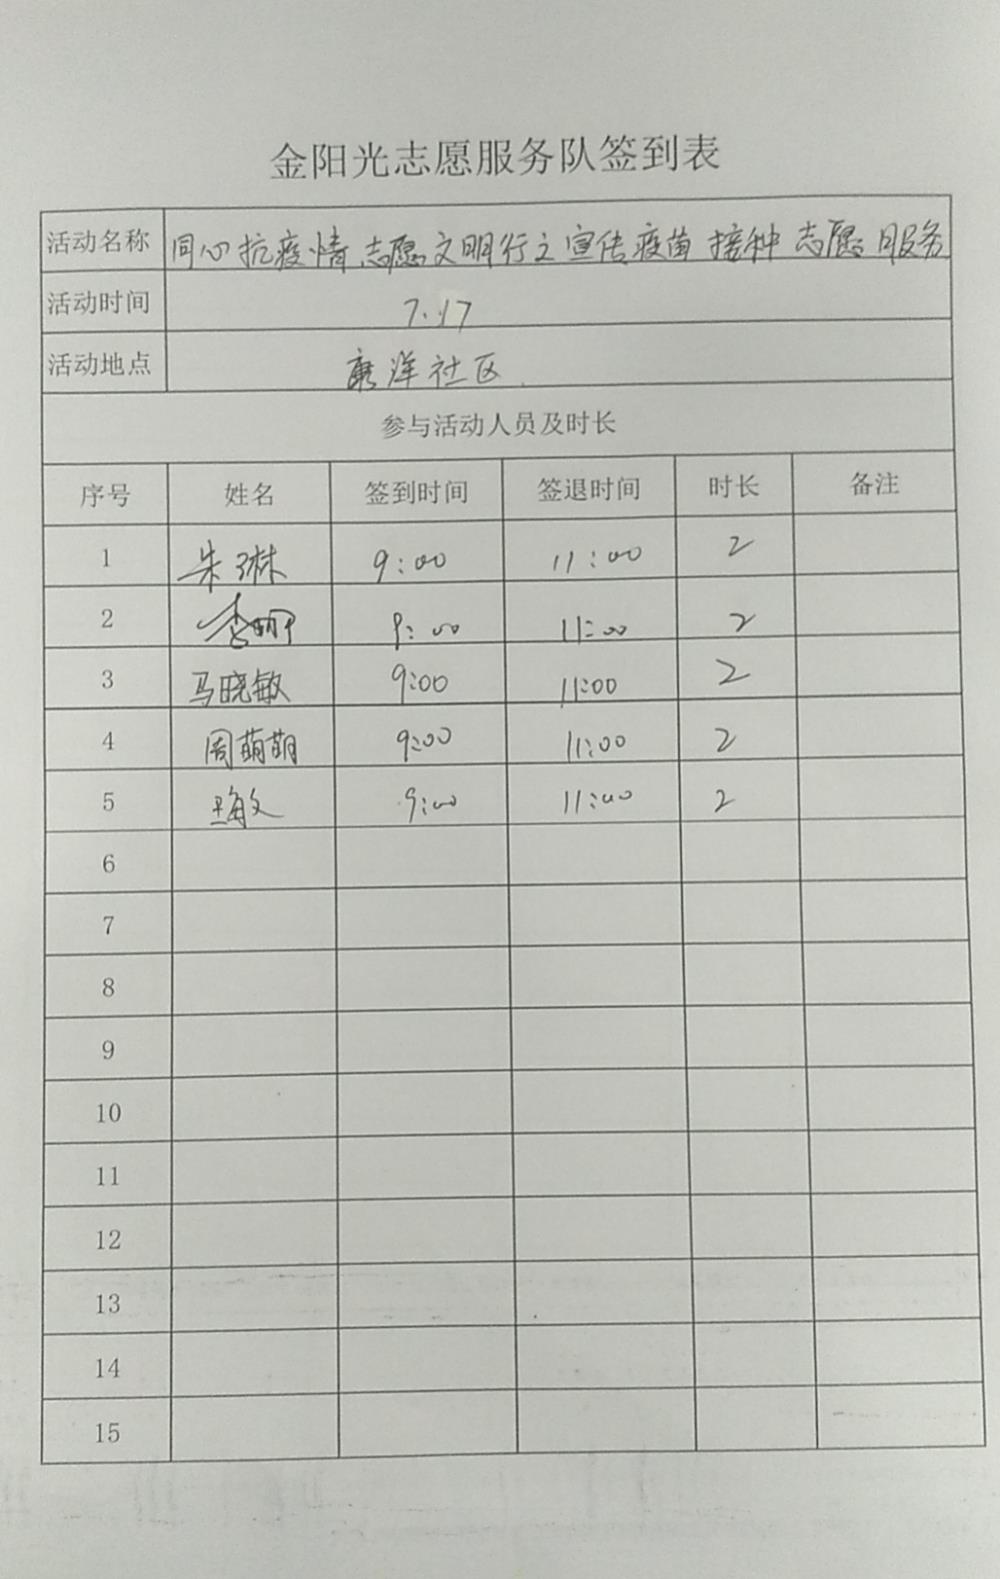 金阳光志愿服务队签到表
活动名称 同心抗疫情 志愿文明行之宣传疫苗接种志愿服务
活动时间 7.17
活动地点 康洋社区
参与活动人员及时长
序号 姓名 签到时间 签退时间 时长 备注
1 朱琳 9:00 11:00 2
2 9:00 11:00 2
3 马晓敏 9:00 11:00 2
4 周萌萌 9:00 11:00 2
5 9:00 11:00 2
6
7
8
9
10
11
12
13
14
15